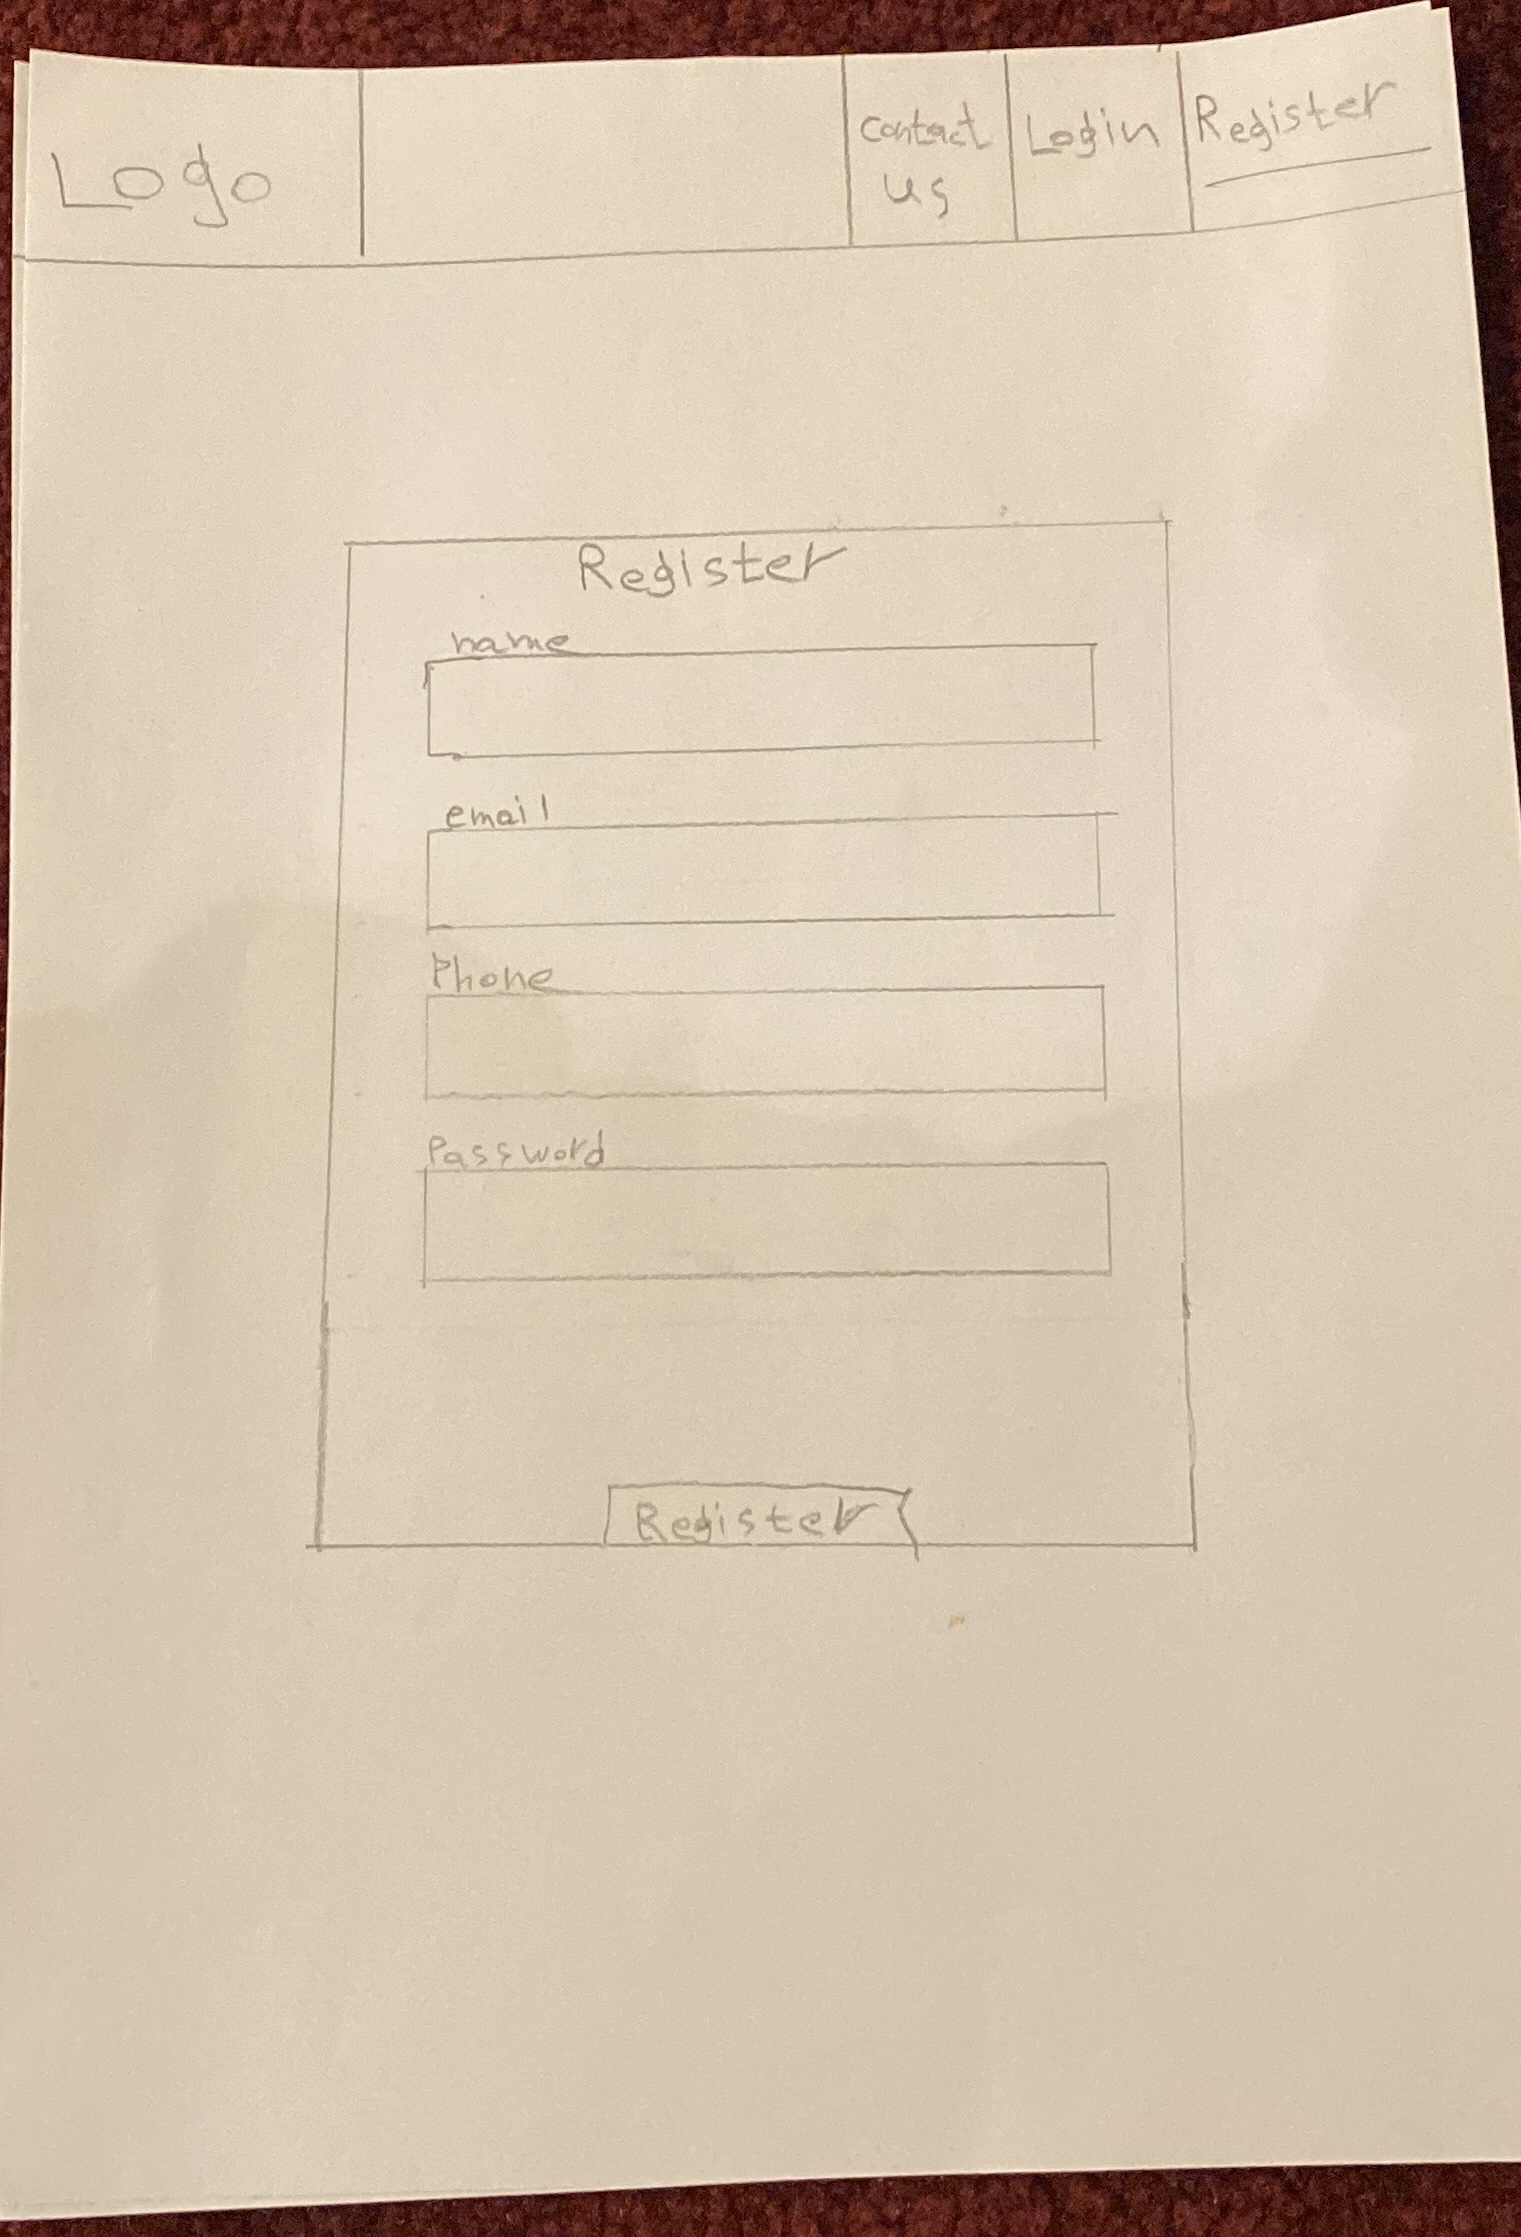 Logo
Contact
us
Login
Register
Register
name
email
Phone
Password
Register